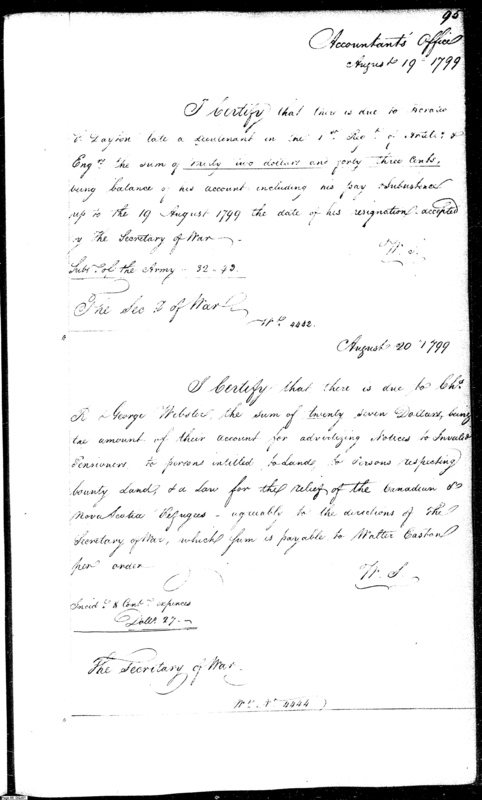 95
Accountants Office
August 19th 1799
I Certify that there is due to
C. Dayton late a Lieutenant in the 1st Regt of Artils. &
Engrs the sum of thirty two dollars and forty three Cents,
being balance of his account including his pay Subsistence
up to the 19 August 1799 the date of his resignation accepted
by the Secretary of War
W. S.
Subs. of the Army 32-43
The Secy of War
Wt. 4442.
August 20 1799
I Certify that there is due to Chs
R & George Webster the sum of twenty seven Dollars, being
the amount of their account for advertizing Notices to Invalid
Pensioners to persons intitled to Lands, to Persons respecting
bounty Land, & a Law for the relief of the Canadian &
Nova Scotia Refugees - agreeable to the directions of the
Secretary of War, which sum is payable to Walter
per order
W. S.
Incidl & Contt expences
Dolls 27 -
The Secretary of War.
Wt No 4444